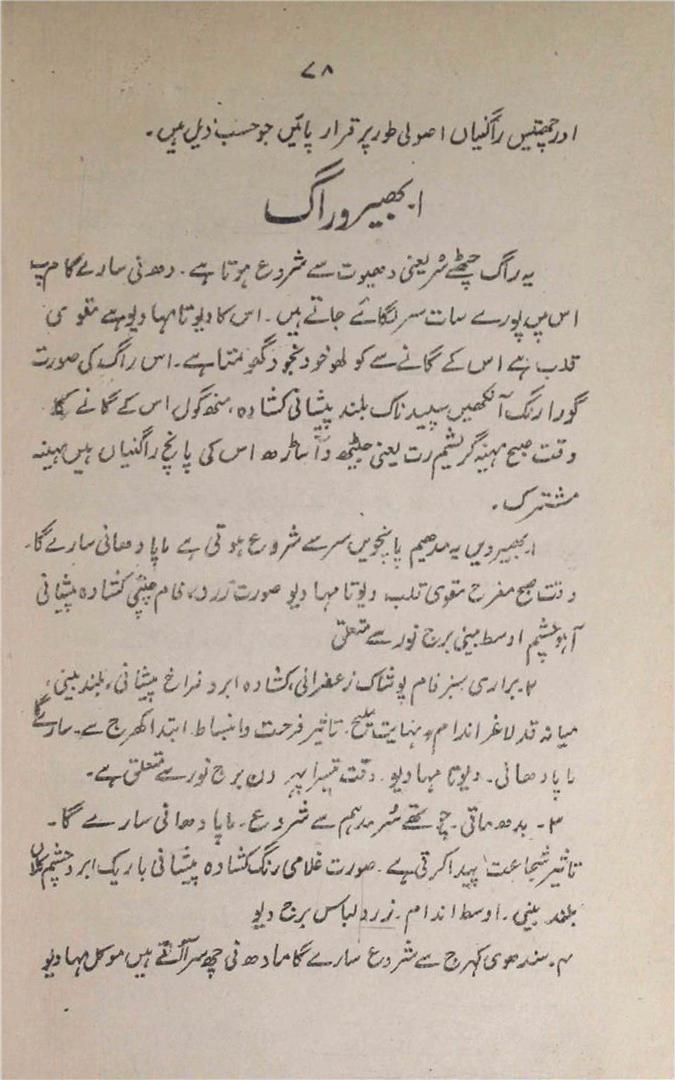 ۷۸
اور چھتیس راگنیاں اصولی طور پر قرار پائیں جو حسب ذیل ہیں۔
ا۔ بھیرو راگ
یہ راگ چھٹے سُر یعنی دھیوت سے شروع ہوتا ہے۔ دھ نی سا رے گا م پ
اس میں پورے سات سر لگائے جاتے ہیں۔ اس کا دیوتا مہادیو ہے مقوی
قلب ہے اس کے گانے سے کولھو خود بخود گھومتا ہے۔ اس راگ کی صورت
گورا رنگ آنکھیں سپید ناک بلند پیشانی کشادہ، منھ گول اس کے گانے کا
وقت صبح مہینہ گریشم رت یعنی جیٹھ و اساڑھ اس کی پانچ راگنیاں ہیں مہینہ
مشترک۔
ا۔ بھیرویں یہ مدھیم پانچویں سر سے شروع ہوتی ہے ما پا دھا نی سا رے گا۔
وقت صبح مفرح مقوی قلب دیوتا مہادیو صورت زرد، فام چنپئی کشادہ پیشانی
آہو چشم اوسط بینی برج نور سے متعلق
۲۔ براری سبز فام پوشاک زعفرانی، کشادہ ابرو فراخ پیشانی، بلند بینی،
میانہ قد لاغر اندام و نہایت ملیح۔ تاثیر فرحت و انبساط۔ ابتدا کھرج سے۔ سا رے گا
ما پا دھا نی۔ دیوتا مہادیو۔ وقت تیسرا پہر دن برج نور سے متعلق ہے۔
۳۔ بدھ ماتی۔ چوتھے سُر مدہم سے شروع۔ ما پا دھا نی سا رے گا۔
تاثیر شجاعت پیدا کرتی ہے۔ صورت غلامی رنگ کشادہ پیشانی باریک ابرو چشم کلاں
بلند بینی۔ اوسط اندام۔ زرد لباس برج دیو
۴۔ سندھوی کہرج سے شروع سا رے گا ما دھ نی چھ سر آتے ہیں موکل مہادیو